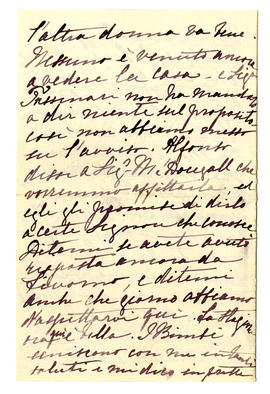 l'altra donna va bene.
Nessuno è venuto ancora
a vedere la casa - e Sigr
non ha mandato
a dir niente sul proposito
così non abbiamo messo
su l'avviso. Alfonso
disse a Sigr Mc Dougall che
vorremmo affittarla, ed
egli gli promise di dirlo
a certe Signore che conosce
Ditemi se avete avuto
risposta ancora da
Livorno, e ditemi
anche che giorno abbiamo
d'aspettarvi qui. La
è bella. I Bimbi
uniscono con me in tanti
saluti e mi dico in fretta